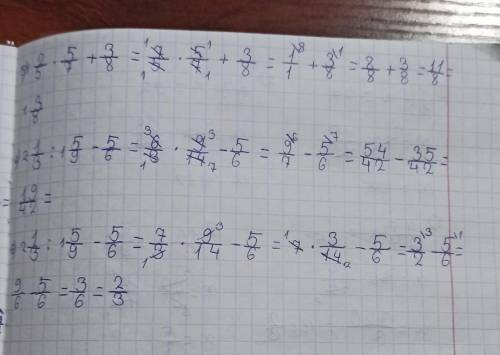 2/5 · 5/7 + 3/8 = 7/5 · 5/7 + 3/8 = 1/1 + 3/8 = 8/8 + 3/8 = 11/8 =
1 3/8
2 1/3 : 1 5/9 - 5/6 = · 9/14 - 5/6 = 9/7 - 5/6 = 54/42 - 35/42 =
= 19/42 =
2 1/3 : 1 5/9 - 5/6 = 7/3 · 9/14 - 5/6 = 7 · 3/14 - 5/6 = 3/2 - 5/6 =
9/6 - 5/6 = 3/6 = 2/3